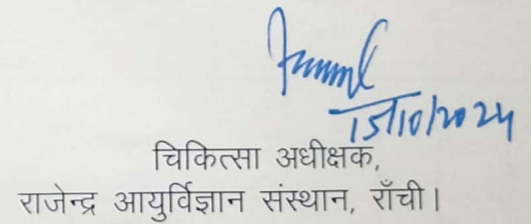 15/10/2024
चिकित्सा अधीक्षक,
राजेन्द्र आयुर्विज्ञान संस्थान, राँची।